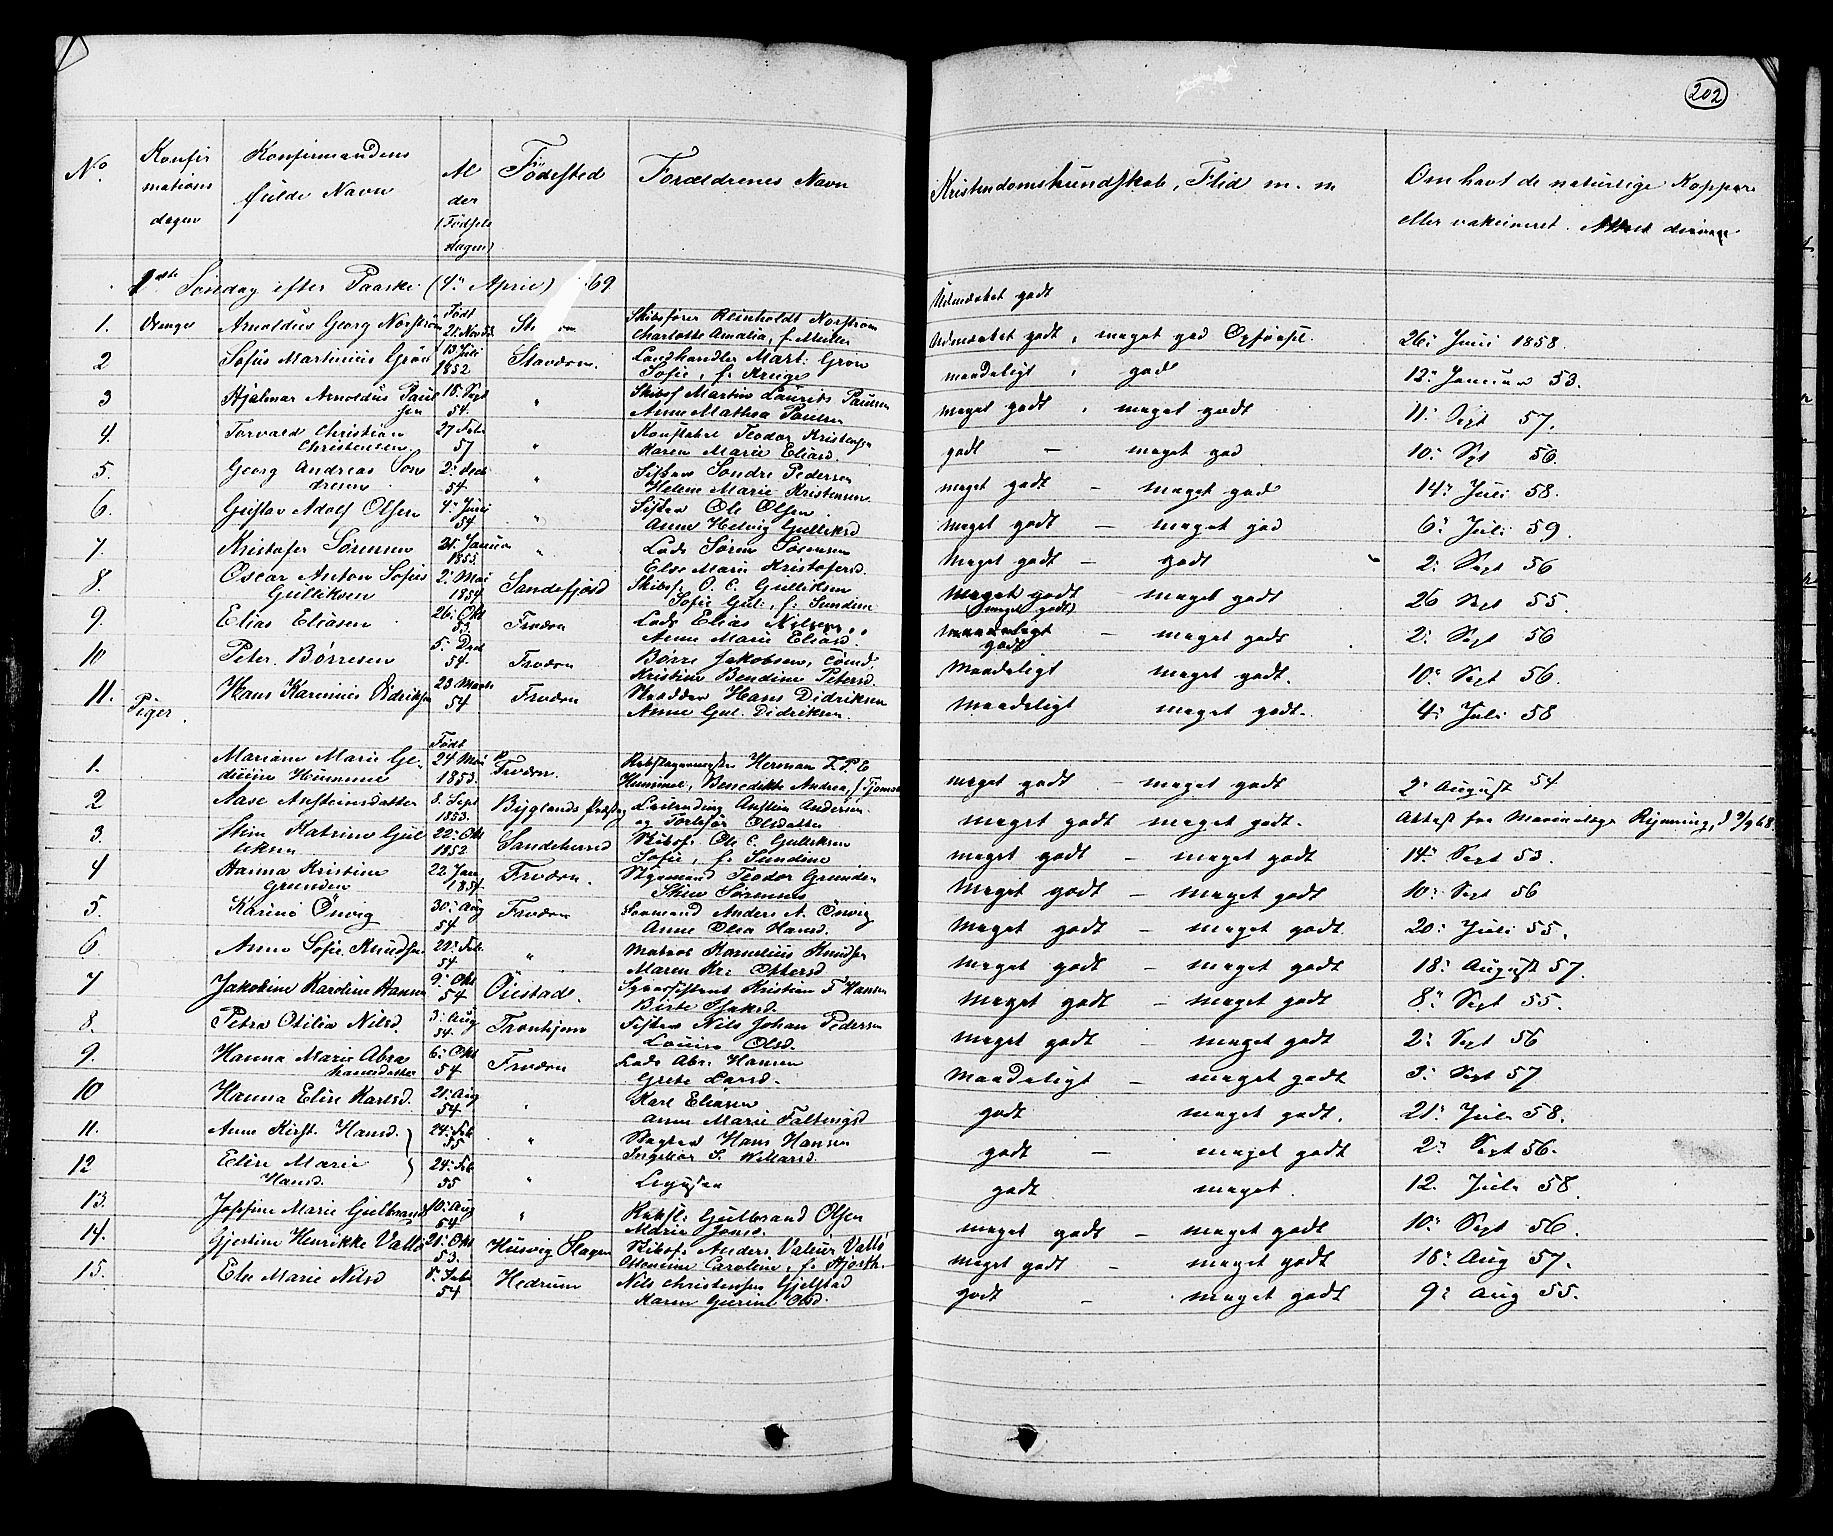 202
No Konfirmationsdagen Konfirmandens fulde Navn Al der (Födselsdagen) Födested Forældrenes Navn Kristendomskundskab, Flid m. m Om havt de naturlige Kopper eller vakcineret.
1ste Söndag efter Paaske (4: April) 69
Udmærket godt
1. Drenge Arnoldus Georg Norström Født 21: Novbr Skibsfører Reinholdt Norström Charlotte Amalia, f. Müller Udmærket godt, meget god Opførsel. 26: Juni 1858.
2 Sofus Martinius Grön 13 Juli 1852 Staværn. Landhandler Mart. Grön Sofie, f. Kruge maadeligt, god 12: Januar 53.
3 Hjalmar Arnoldus Paulsen 15: Sept 54. " Skibsf Martin Laurits Paulsen Anne Mathea Paulsen meget godt, meget godt 11: Sept 57.
4. Torvald Christian Christensen 27 Febr 57 " Konstabel Teodor Kristensen Karen Marie Eliasd. godt – meget god 10: Spt 56.
5. Georg Andreas Sondresen 2: Decb 54. " Fisker Sondre Pedersen Helene Marie Kristensen meget godt – meget god 14: Juli 58.
6. Gustav Adolf Olsen 4: Juni 54. " Fisker Ole Olsen Anne Helvig Gulliksd meget godt – meget god 6: Juli 59
7. Kristofer Sörensen 21: Januar 1855. " Lods Sören Sörensen Else Marie Kristofersd. Meget godt – godt 2: Sept 56
8. Oscar Anton Sofus Gulliksen 2: Mai 1854. Sandefjord Skibsf. O. C. Gulliksen Sofie Gul: f. Sundine Meget godt – meget godt 26 Sept 55.
9. Elias Eliasen 26: Okt 53. Fredvern Lods Elias Nilsen, Anne Marie Eliasd. (meget godt) godt – meget godt 2: Sept 56
10 Peter Börresen 5: Decb 54 Fredvern Börre Jakobsen, Tömd. Kristine Bendine Petersd Maadeligt meget godt. 10: Sept 56.
11. Hans Karinius Didriksen 23 Marts 54 Fredvern Skrædder Hans Didriksen Anne Gul. Didriksen. Maadeligt meget godt. 4: Juli 58
Piger.
1. Mariane Marie Gedinine Hummel Født 24 Mai 1853. Fredvern. Rebslagermester Herman F. P. E Hummel, Benedikte Andrea, f. Tjomsl meget godt – meget godt 2: August 54
2 Aase Ansteinsdatter 8. Sept 1853. Bygglands Præstg Leilending Anstein Andersen og Torbjör Olsdatter meget godt meget godt. Attest fra Marinelæge Rynning, d 9/9 68.
3. Stine Katrine Gulliksen 22: Okt 1852 Sandeherred Skibsf. Ole C. Gulliksen Sofie, f. Sundine meget godt – meget godt 14: Sept 53.
4 Hanna Kristine Grunden 22 Jan 1854. Fredvern. Styrmand Teodor Grunden Stine Sörensen Meget godt – meget godt 10: Sept 56
5. Karine Önvig 30: Aug 54 Fredvern Sømand Anders A. Önvig Anne Olea Hansd. Meget godt – meget godt 20: Juli 55.
6 Anne Sofie Knudsen 20: Feb. 54. " Matros Kornelius Knudsen Maren Kr: Ottersd Meget godt – meget godt 18: August 57.
7 Jakobine Karoline Hansen 9: Okt 54 Öiestad. Kristian F Hansen Birte Isaksd. meget godt – meget godt 8: Sept 55.
8. Petra Otilia Nilsd. 3: Aug 54. Tronhjem Fisker Nils Johan Pedersen Lovise Olsd. meget godt – meget godt 2: Sept 56
9. Hanna Marie Abrahamsdatter 6: Okt 54 Fredvern Lods Abr. Hansen Grete Larsd. Maadeligt – meget godt 3: Sept 57
10 Hanna Elise Karlsd. 21: Aug 54 " Karl Eliasen Anne Marie Faltingsd godt meget godt. 21: Juli 58.
11. Anne Kirst. Hansd. 24: Feb 55 " Hans Hansen Ingebor S. Willarsd. godt – meget godt 2: Sept 56.
12 Elise Marie Hansd. 24: Feb 55 " godt. meget. 12. Juli 58.
13. Josefine Marie Gulbrands 10: Aug 54. " Gulbrand Olsen Marie Jonsd. meget godt – meget godt 10: Sept 56.
14. Gjertine Henrikke Vallö 21: Okt 53. Husvig Slagen Skibsf. Anders Valeur Vallö Ottomine Caroline, f. Hjorth. meget godt – meget godt 18: Aug 57.
15. Else Marie Nilsd 8: Febr 54 Hedrum Nils Christensen Gjelstad Karen Gurine Olsd. godt – meget godt 9: Aug 55.